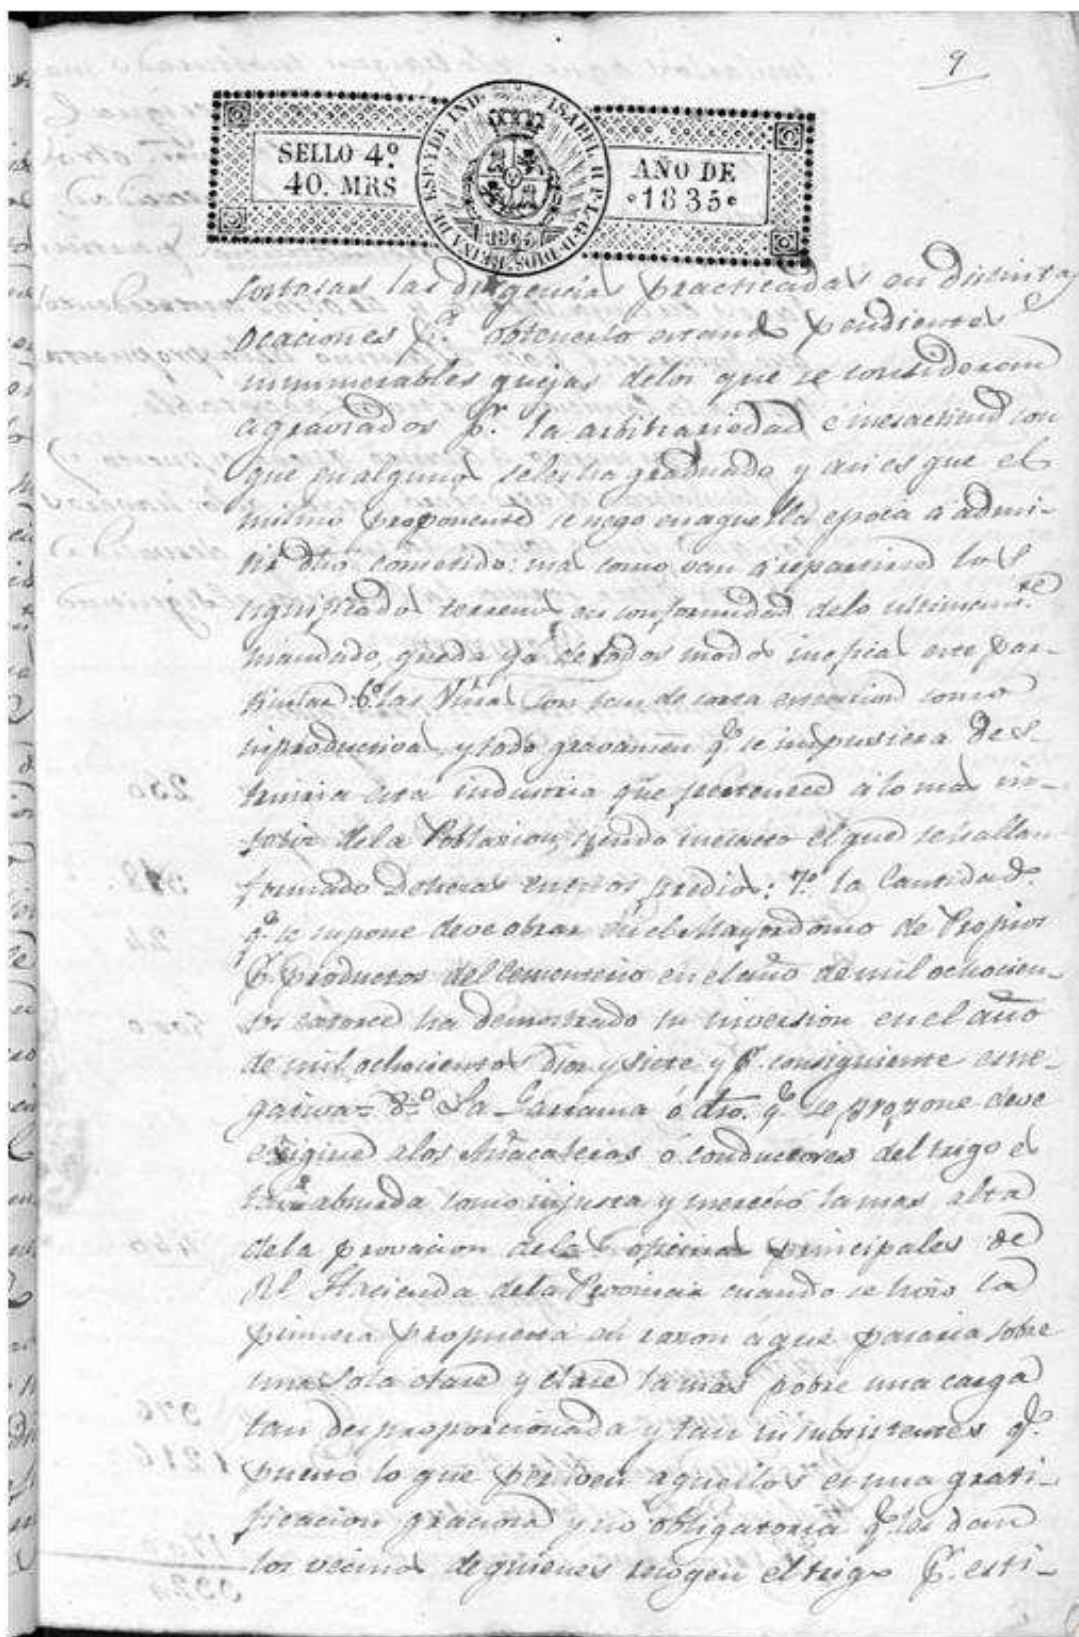 9
SELLO 4º
40. MRS
ISABEL II P. L. G. D. DIOS REINA DE ESP. Y DE IND.
1835
AÑO DE
1835
las diligencias practicadas en distintas
ocaciones pª. obtenerlo estando pendientes
innumerables quejas delos que se consideran
agraviados pr. la arbitrariedad é inesactitud con
que en algunos seles ha graduado y asi es que el
mismo proponente se nego en aquella epoca á admi-
tir dho. cometido: mas como van á repartirse los
significados terrenos en conformidad delo ultimamte.
mandado, queda ya de todos modos inefica este par-
ticular. 6º. las Viñas son tan de corta como
inproductivas, y todo gravamen qe. se impusiera des-
truiria esta industria que pertenece á lo mas in-
feliz dela Poblacion, siendo inesacto el que se hallan
formado en esos predios: 7º. la Cantidad
qe. se supone deve obrar en el Mayordomo de Propios
pr. productos del Cementerio en el año de mil ochocien-
tos catorce ha demostrado su inversion en el año
de mil ochocientos diez y siete y pr. consiguiente es ne-
gativa= 8º. La ó dro. qe. se propone deve
exigirse alos ó conductores del trigo es
tan absurda como injusta y merecio la mas alta
desaprovacion delas oficinas principales de
Rl. Hacienda dela Provincia cuando se hizo la
primera propuesta en razon á que pesaria sobre
una sola clase y clase la mas pobre una carga
tan desproporcionada y tan insubsistente qe.
puesto lo que perciven aquellos es una grati-
ficacion graciosa y no obligatoria qe. les dan
los vecinos de quienes recogen el trigo pr. esti-